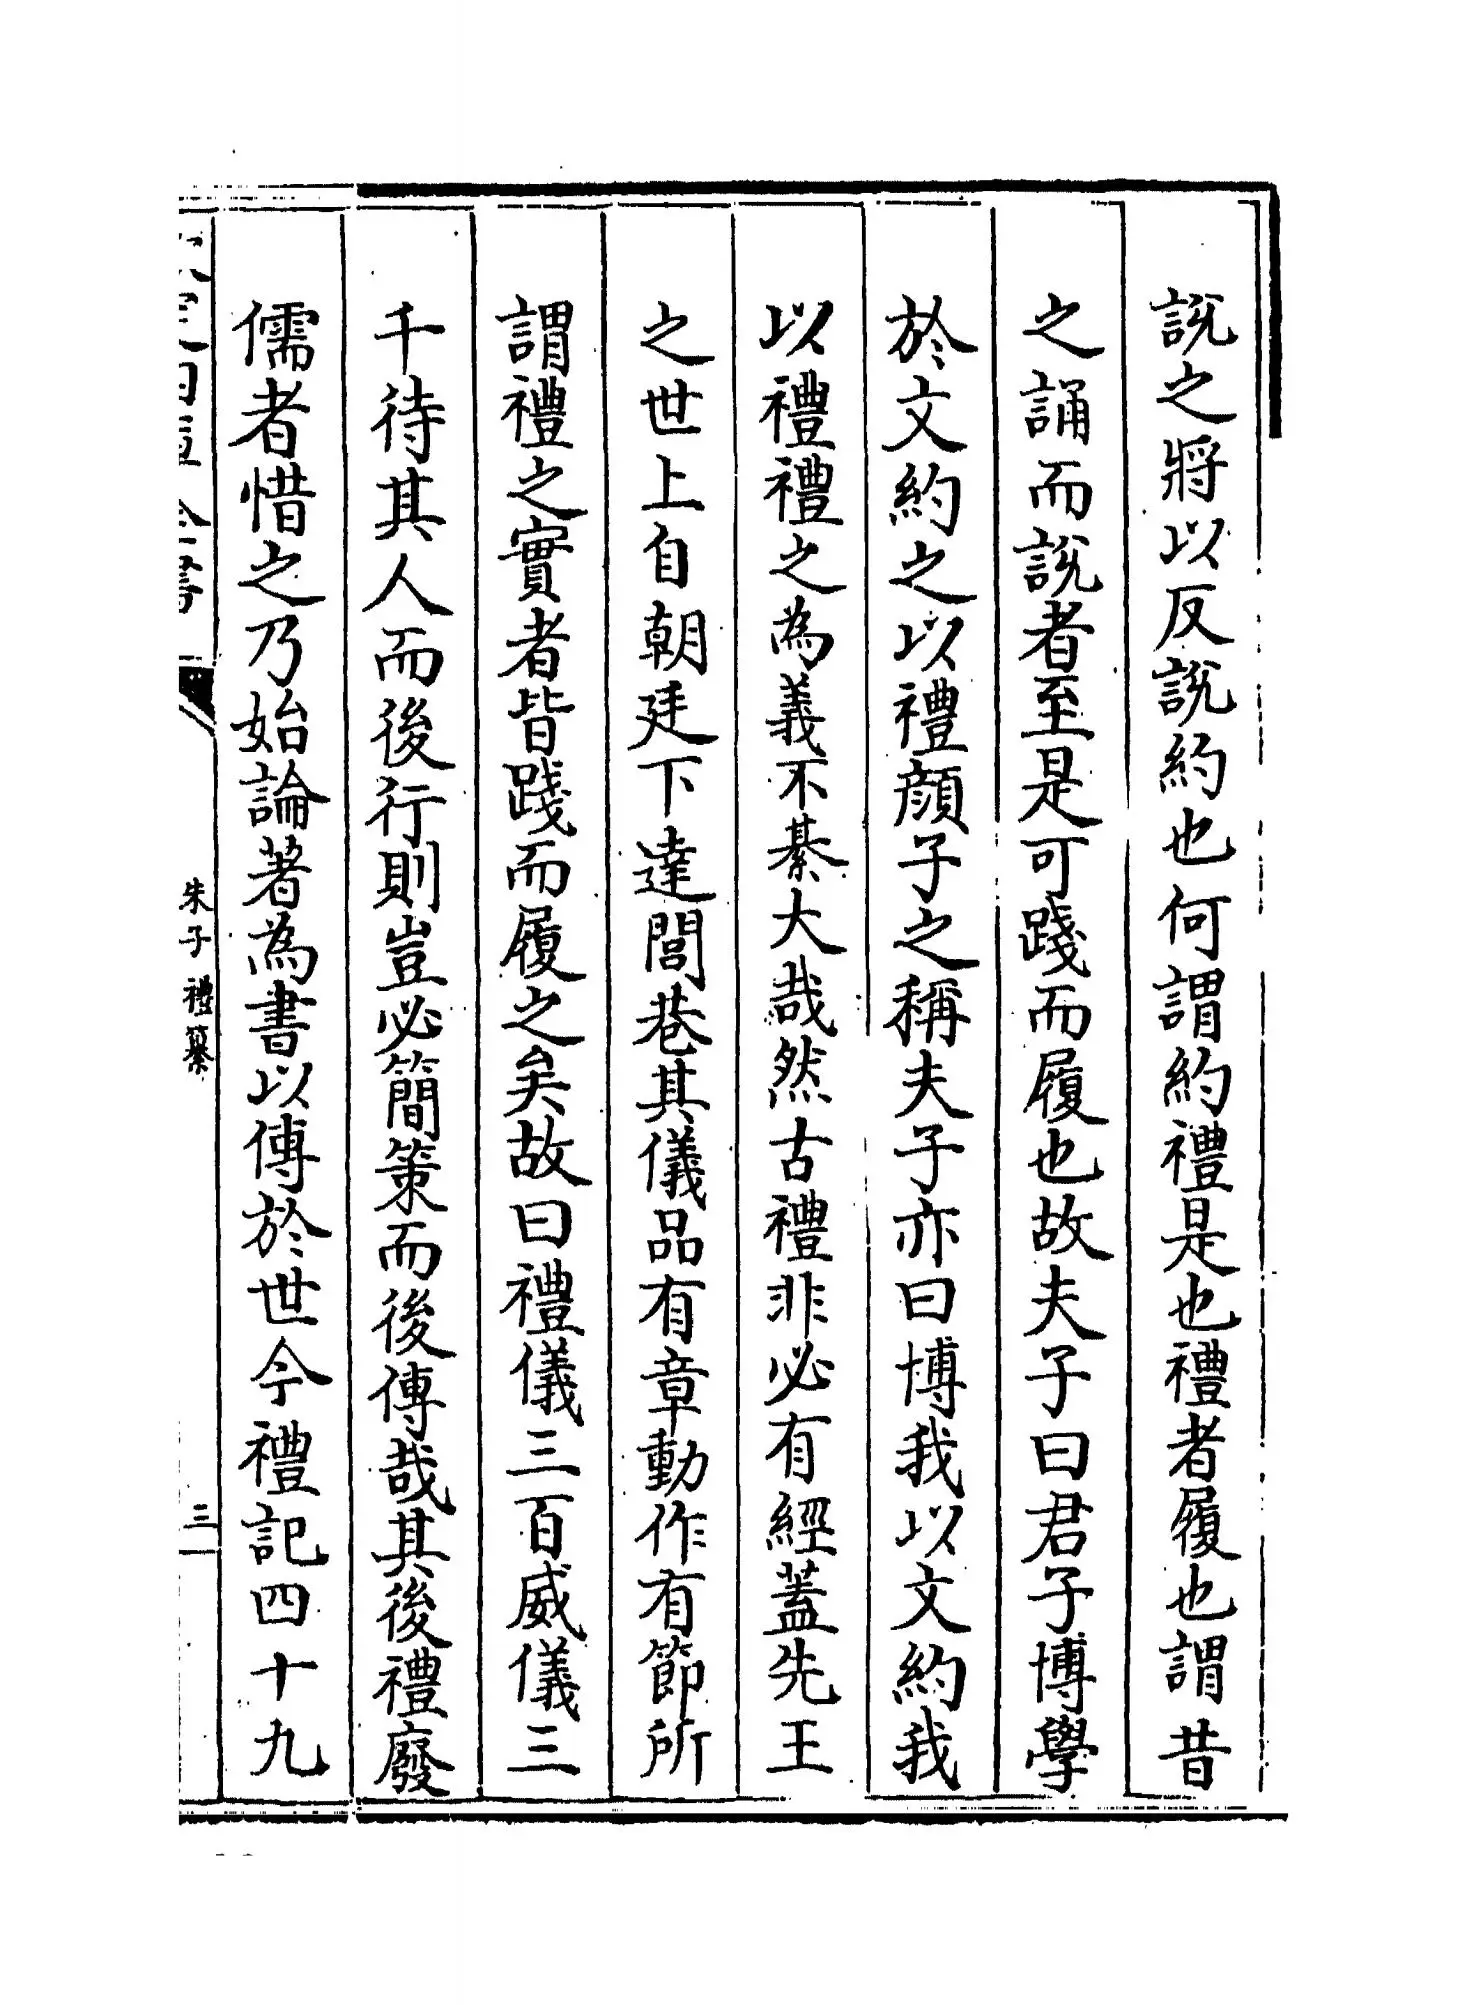 說之將以反說約也何謂約禮是也禮者履也謂昔
之誦而說者至是可踐而履也故夫子曰君子博學
於文約之以禮顔子之稱夫子亦曰博我以文約我
以禮禮之為義不綦大哉然古禮非必有經蓋先王
之世上自朝廷下達閭巷其儀品有章動作有節所
謂禮之實者皆踐而履之矣故曰禮儀三百威儀三
千待其人而後行則豈必簡策而後傳哉其後禮廢
儒者惜之乃始論著為書以傳於世今禮記四十九
朱子禮纂
三